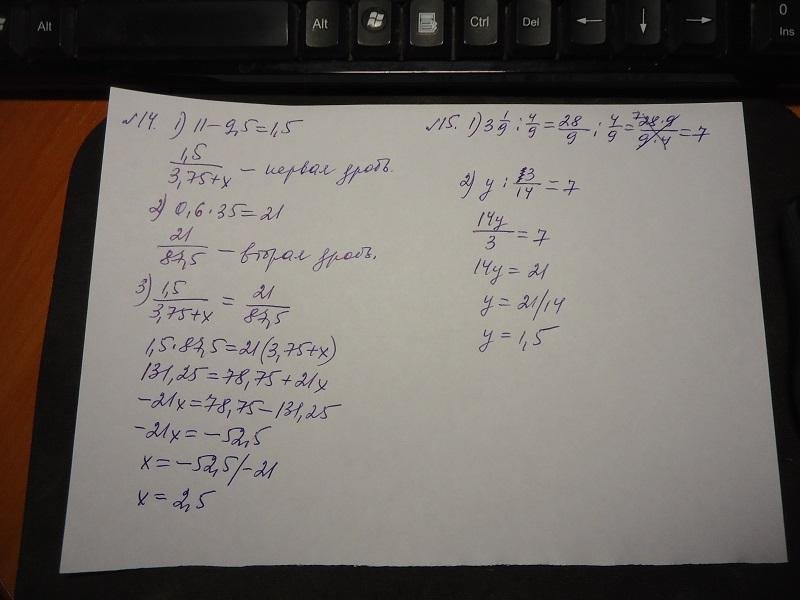 Alt
Alt
Ctrl
Del
←
↓
→
0
Ins
№14. 1) 11-9,5=1,5
1,5/(3,75+x) - первая дробь.
2) 0,6·35=21
21/87,5 - вторая дробь.
3) 1,5/(3,75+x) = 21/87,5
1,5·87,5=21(3,75+x)
131,25=78,75+21x
-21x=78,75-131,25
-21x=-52,5
x=-52,5/-21
x=2,5
№15. 1) 3 1/9 : 4/9 = 28/9 : 4/9 = 7 28·9/9·4 = 7
2) y : 3/14 = 7
14y/3 = 7
14y = 21
y = 21/14
y = 1,5